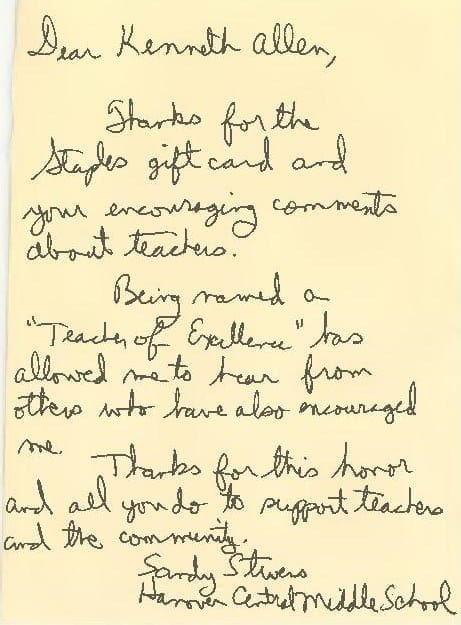 Dear Kenneth Allen,
Thanks for the
Staples gift card and
your encouraging comments
about teachers.
Being named a
"Teacher of Excellence" has
allowed me to hear from
others who have also encouraged
me.
Thanks for this honor
and all you do to support teachers
and the community.
Sandy Stivers
Hanover Central Middle School